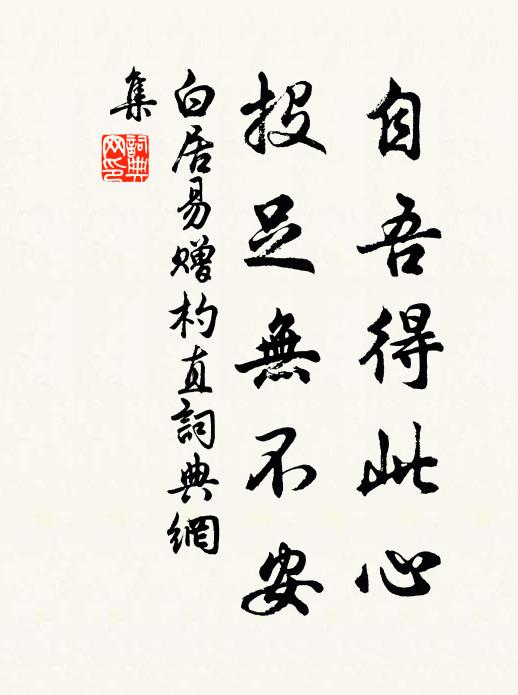 自吾得此心
投足無不安
白居易赠杓直詞典網
集
詞典
网印